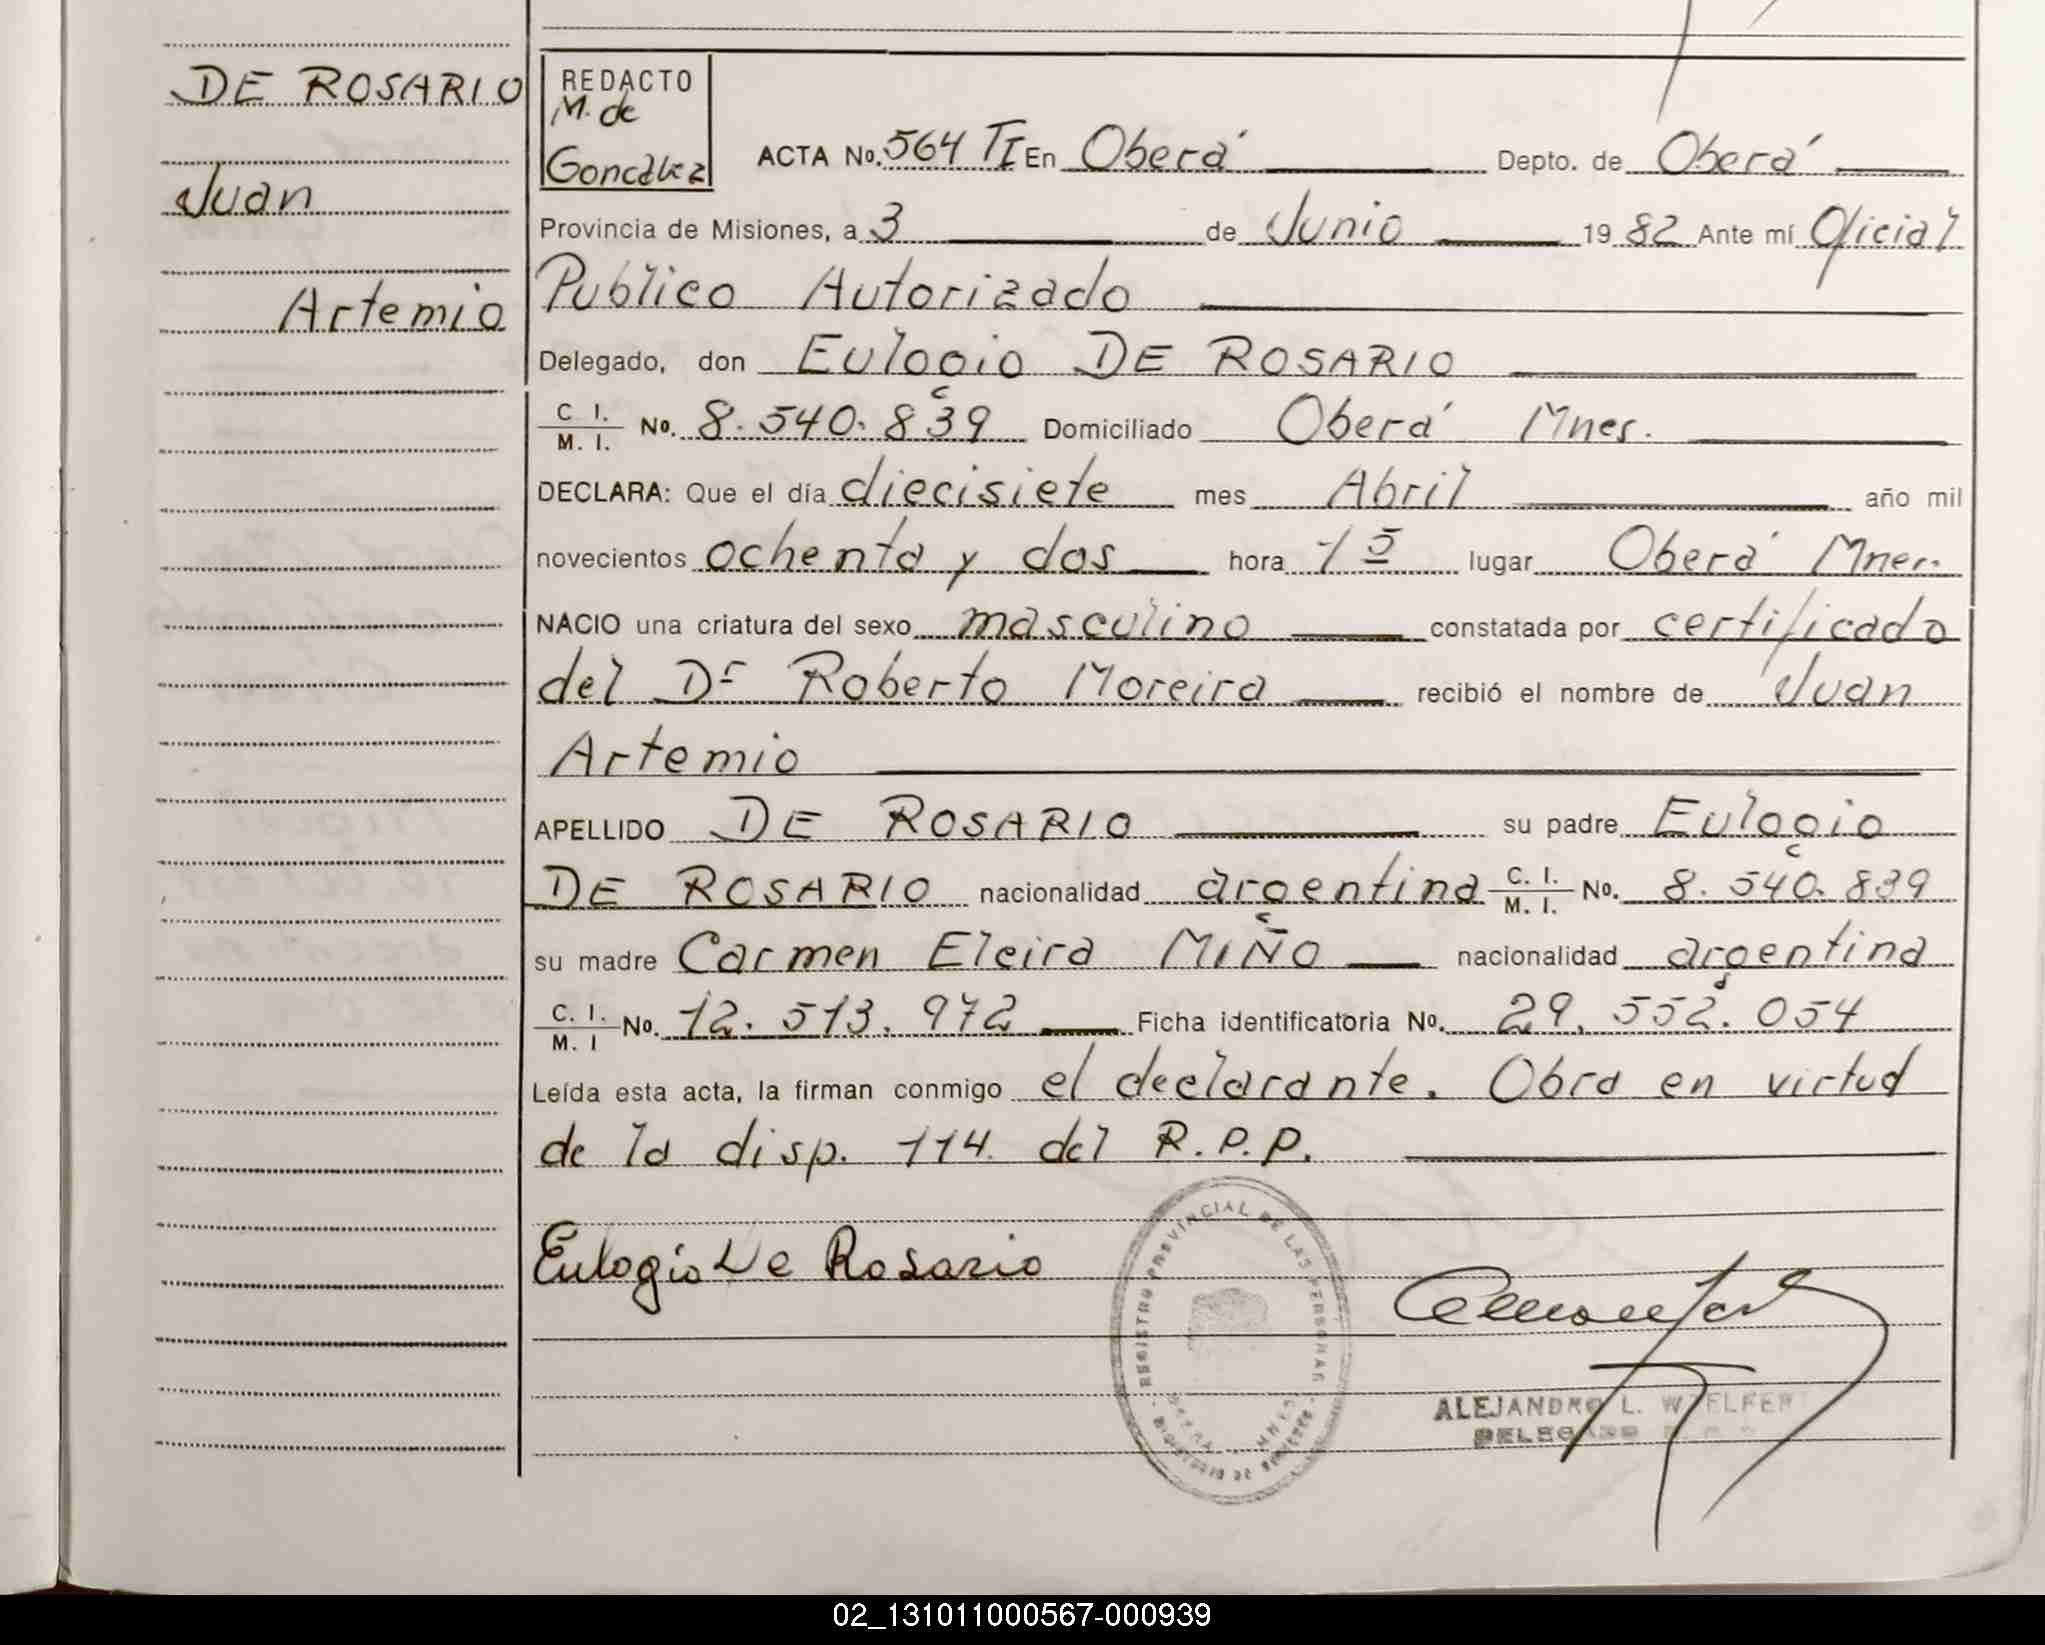 DE ROSARIO
Juan
Artemio
REDACTO
M. de
Goncàlvez
ACTA No. 564 TI En Oberá Depto. de Oberá
Provincia de Misiones, a 3 de Junio 1982 Ante mí Oficial
Publico Autorizado
Delegado, don Eulogio DE ROSARIO
C. I. / M. I. No. 8.540.839 Domiciliado Oberá Mnes.
DECLARA: Que el día diecisiete mes Abril año mil
novecientos ochenta y dos hora 15 lugar Oberá Mnes.
NACIO una criatura del sexo masculino constatada por certificado
del Dr Roberto Moreira recibió el nombre de Juan
Artemio
APELLIDO DE ROSARIO su padre Eulogio
DE ROSARIO nacionalidad argentina C. I. / M. I. No. 8.540.839
su madre Carmen Elcira MIÑO nacionalidad argentina
C. I. / M. I No. 12.513.972 Ficha identificatoria No. 29.552.054
Leída esta acta, la firman conmigo el declarante. Obra en virtud
de la disp. 114 del R.P.P.
Eulogio De Rosario
REGISTRO PROVINCIAL DE LAS PERSONAS
ALEJANDRO L.
DELEGADO
02_131011000567-000939